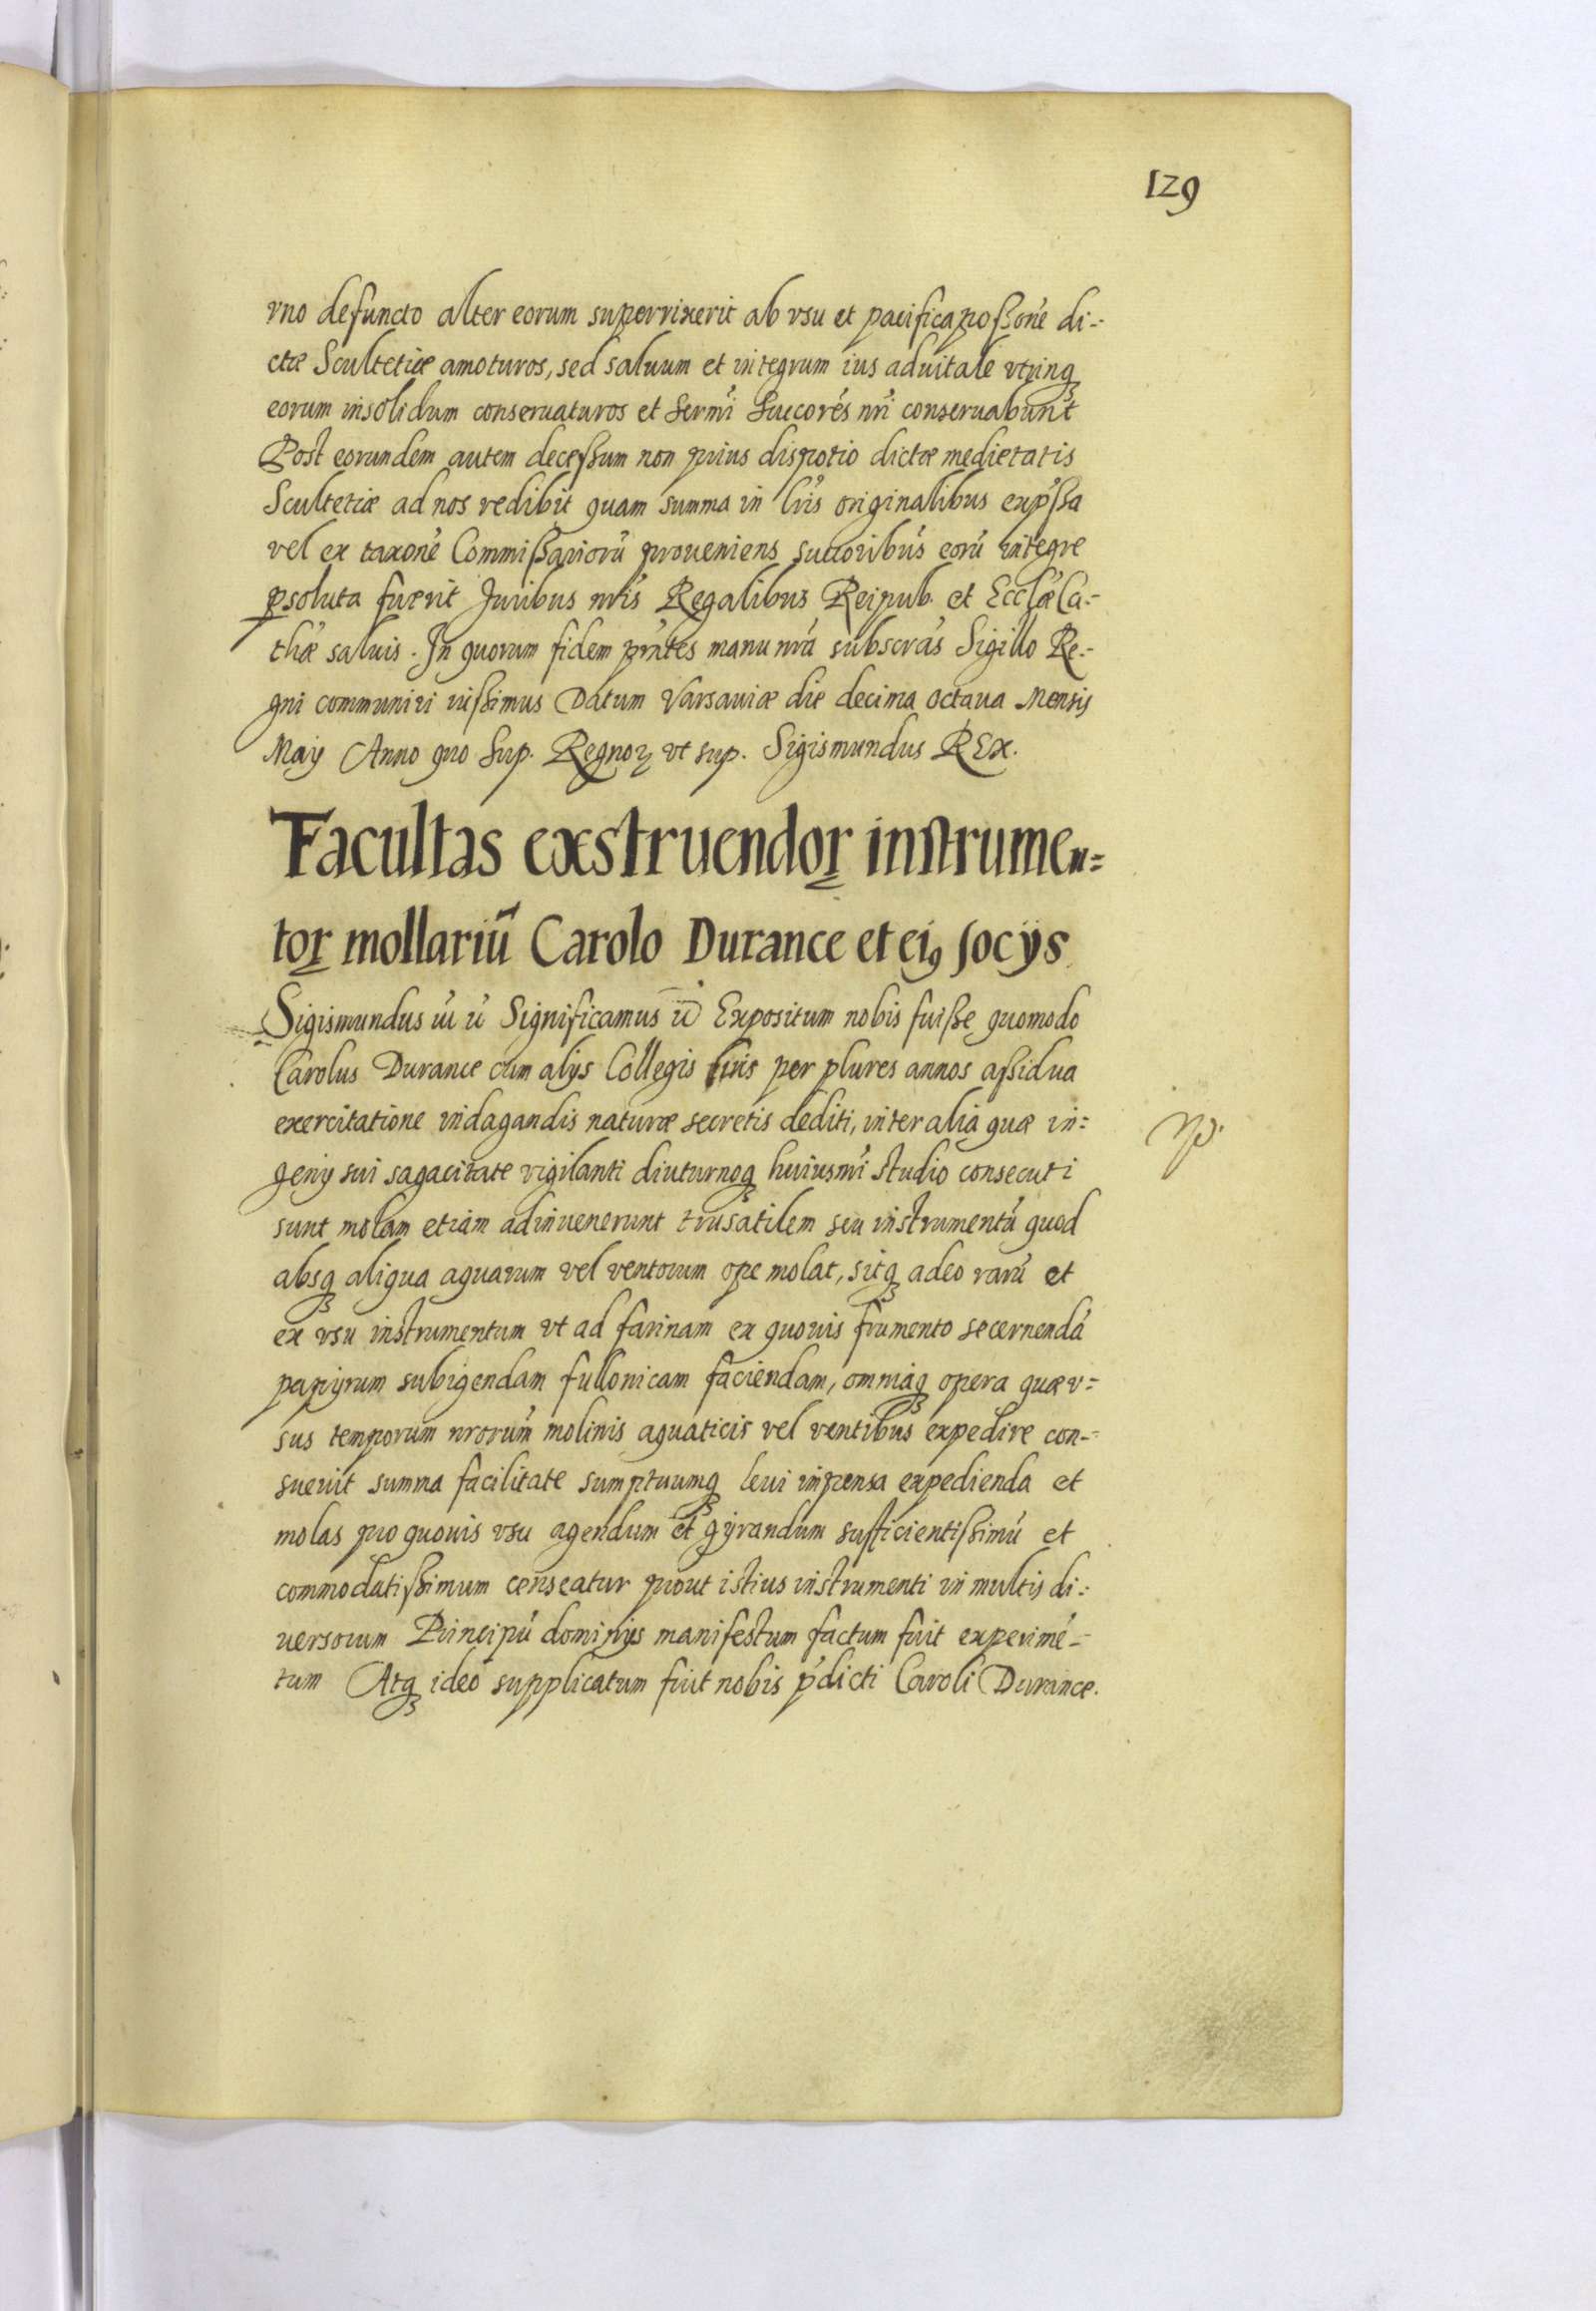 129
vno defuncto alter eorum supervixerit ab vsu et pacifica poßone di-
ctæ Scultetiæ amoturos, sed saluum et integrum ius aduitale vtrinq
eorum insolidum conseruaturos et Sermi Succores nri conseruabunt
Post eorundem autem deceßum non prius dispotio dictæ medietatis
Scultetiæ ad nos redibit quam summa in lris originalibus expßa
vel ex taxone Commißariorū proueniens succoribus eorū integre
psoluta fuerit Juribus nris Regalibus Reipub. et Ecclæ Ca-
thæ saluis. In quorum fidem pntes manu nra subscras Sigillo Re-
gni communiri iußimus Datum Varsauiæ die decima octaua Mensis
Maij Anno quo sup. Regnoꝝ vt sup. Sigismundus REX.
Facultas exstruendoꝝ instrumen=
toꝝ mollariū Carolo Durance et eiꝰ socijs
Sigismundus Significamus Expositum nobis fuiße quomodo
Carolus Durance cum alijs Collegis suis per plures annos aßidua
exercitatione indagandis naturæ secretis dediti, inter alia quæ in=
genij sui sagacitate vigilanti diuturnoq huiusmi studio consecuti
sunt molam etiam adinuenerunt trusatilem seu instrumentū quod
absq aliqua aquarum vel ventorum ope molat, sitq adeo rarū et
ex vsu instrumentum vt ad farinam ex quouis frumento secernendā
papyrum subigendam fullonicam faciendam, omniaq opera quæ v=
sus temporum nrorum molinis aquaticis vel ventibus expedire con-
sueuit summa facilitate sumptuumq leui impensa expedienda et
molas pro quouis vsu agendum et gyrandum sufficientißimū et
commodatißimum censeatur prout istius instrumenti in multis di-
uersorum Principū dominijs manifestum factum fuit experimē-
tum Atq ideo supplicatum fuit nobis pdicti Caroli Durance.